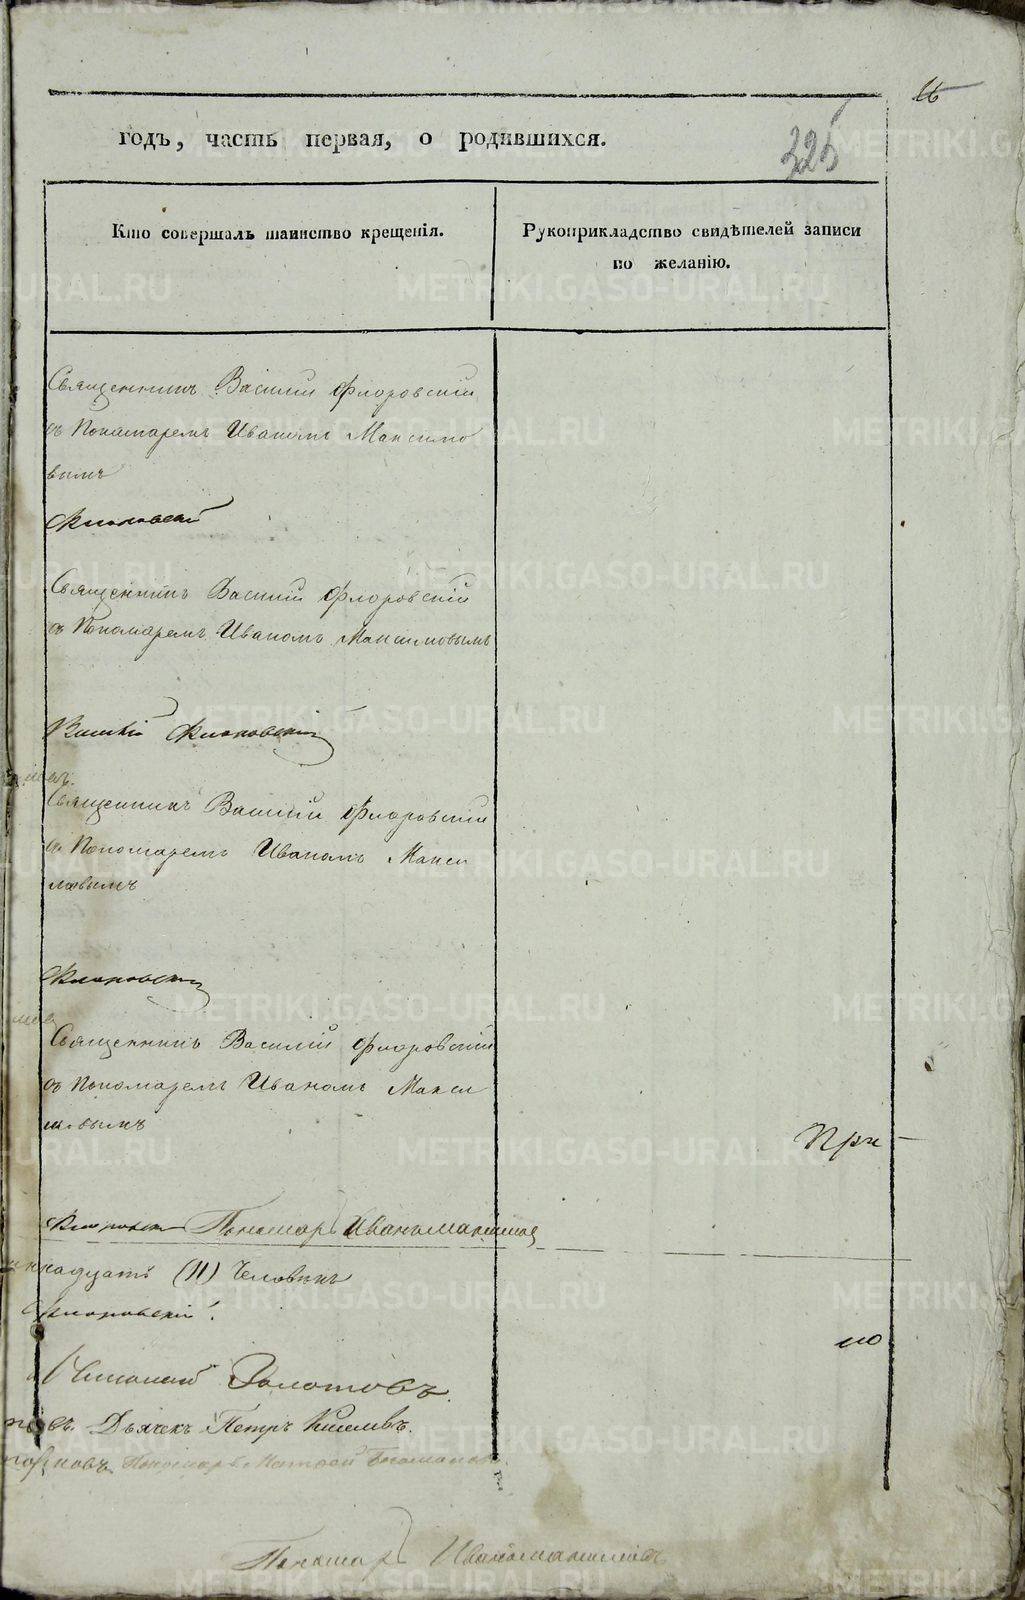 16
годъ, часть первая, о родившихся.
325
Кто совершалъ таинство крещенія.
Рукоприкладство свидѣтелей записи
по желанію.
Священникъ Василій Флоровскій
съ Пономаремъ Иваномъ Максимо
вымъ
Флоровскій
Священникъ Василій Флоровскій
съ Пономаремъ Иваномъ Максимовымъ
Василій Флоровскій
Священникъ Василій Флоровскій
съ Пономаремъ Иваномъ Макси
мовымъ
Флоровскій
Священникъ Василій Флоровскій
съ Пономаремъ Иваномъ Макси
мовымъ
При
Флоровскій Пономарь Иванъ Максимов
ннадцать (11) Человѣкъ
Флоровскій.
по
Николай Золотовъ
Дьячекъ Петръ
Пономарь Матвей
Пономарь Иванъ Максимовъ
METRIKI.GASO-URAL.RU